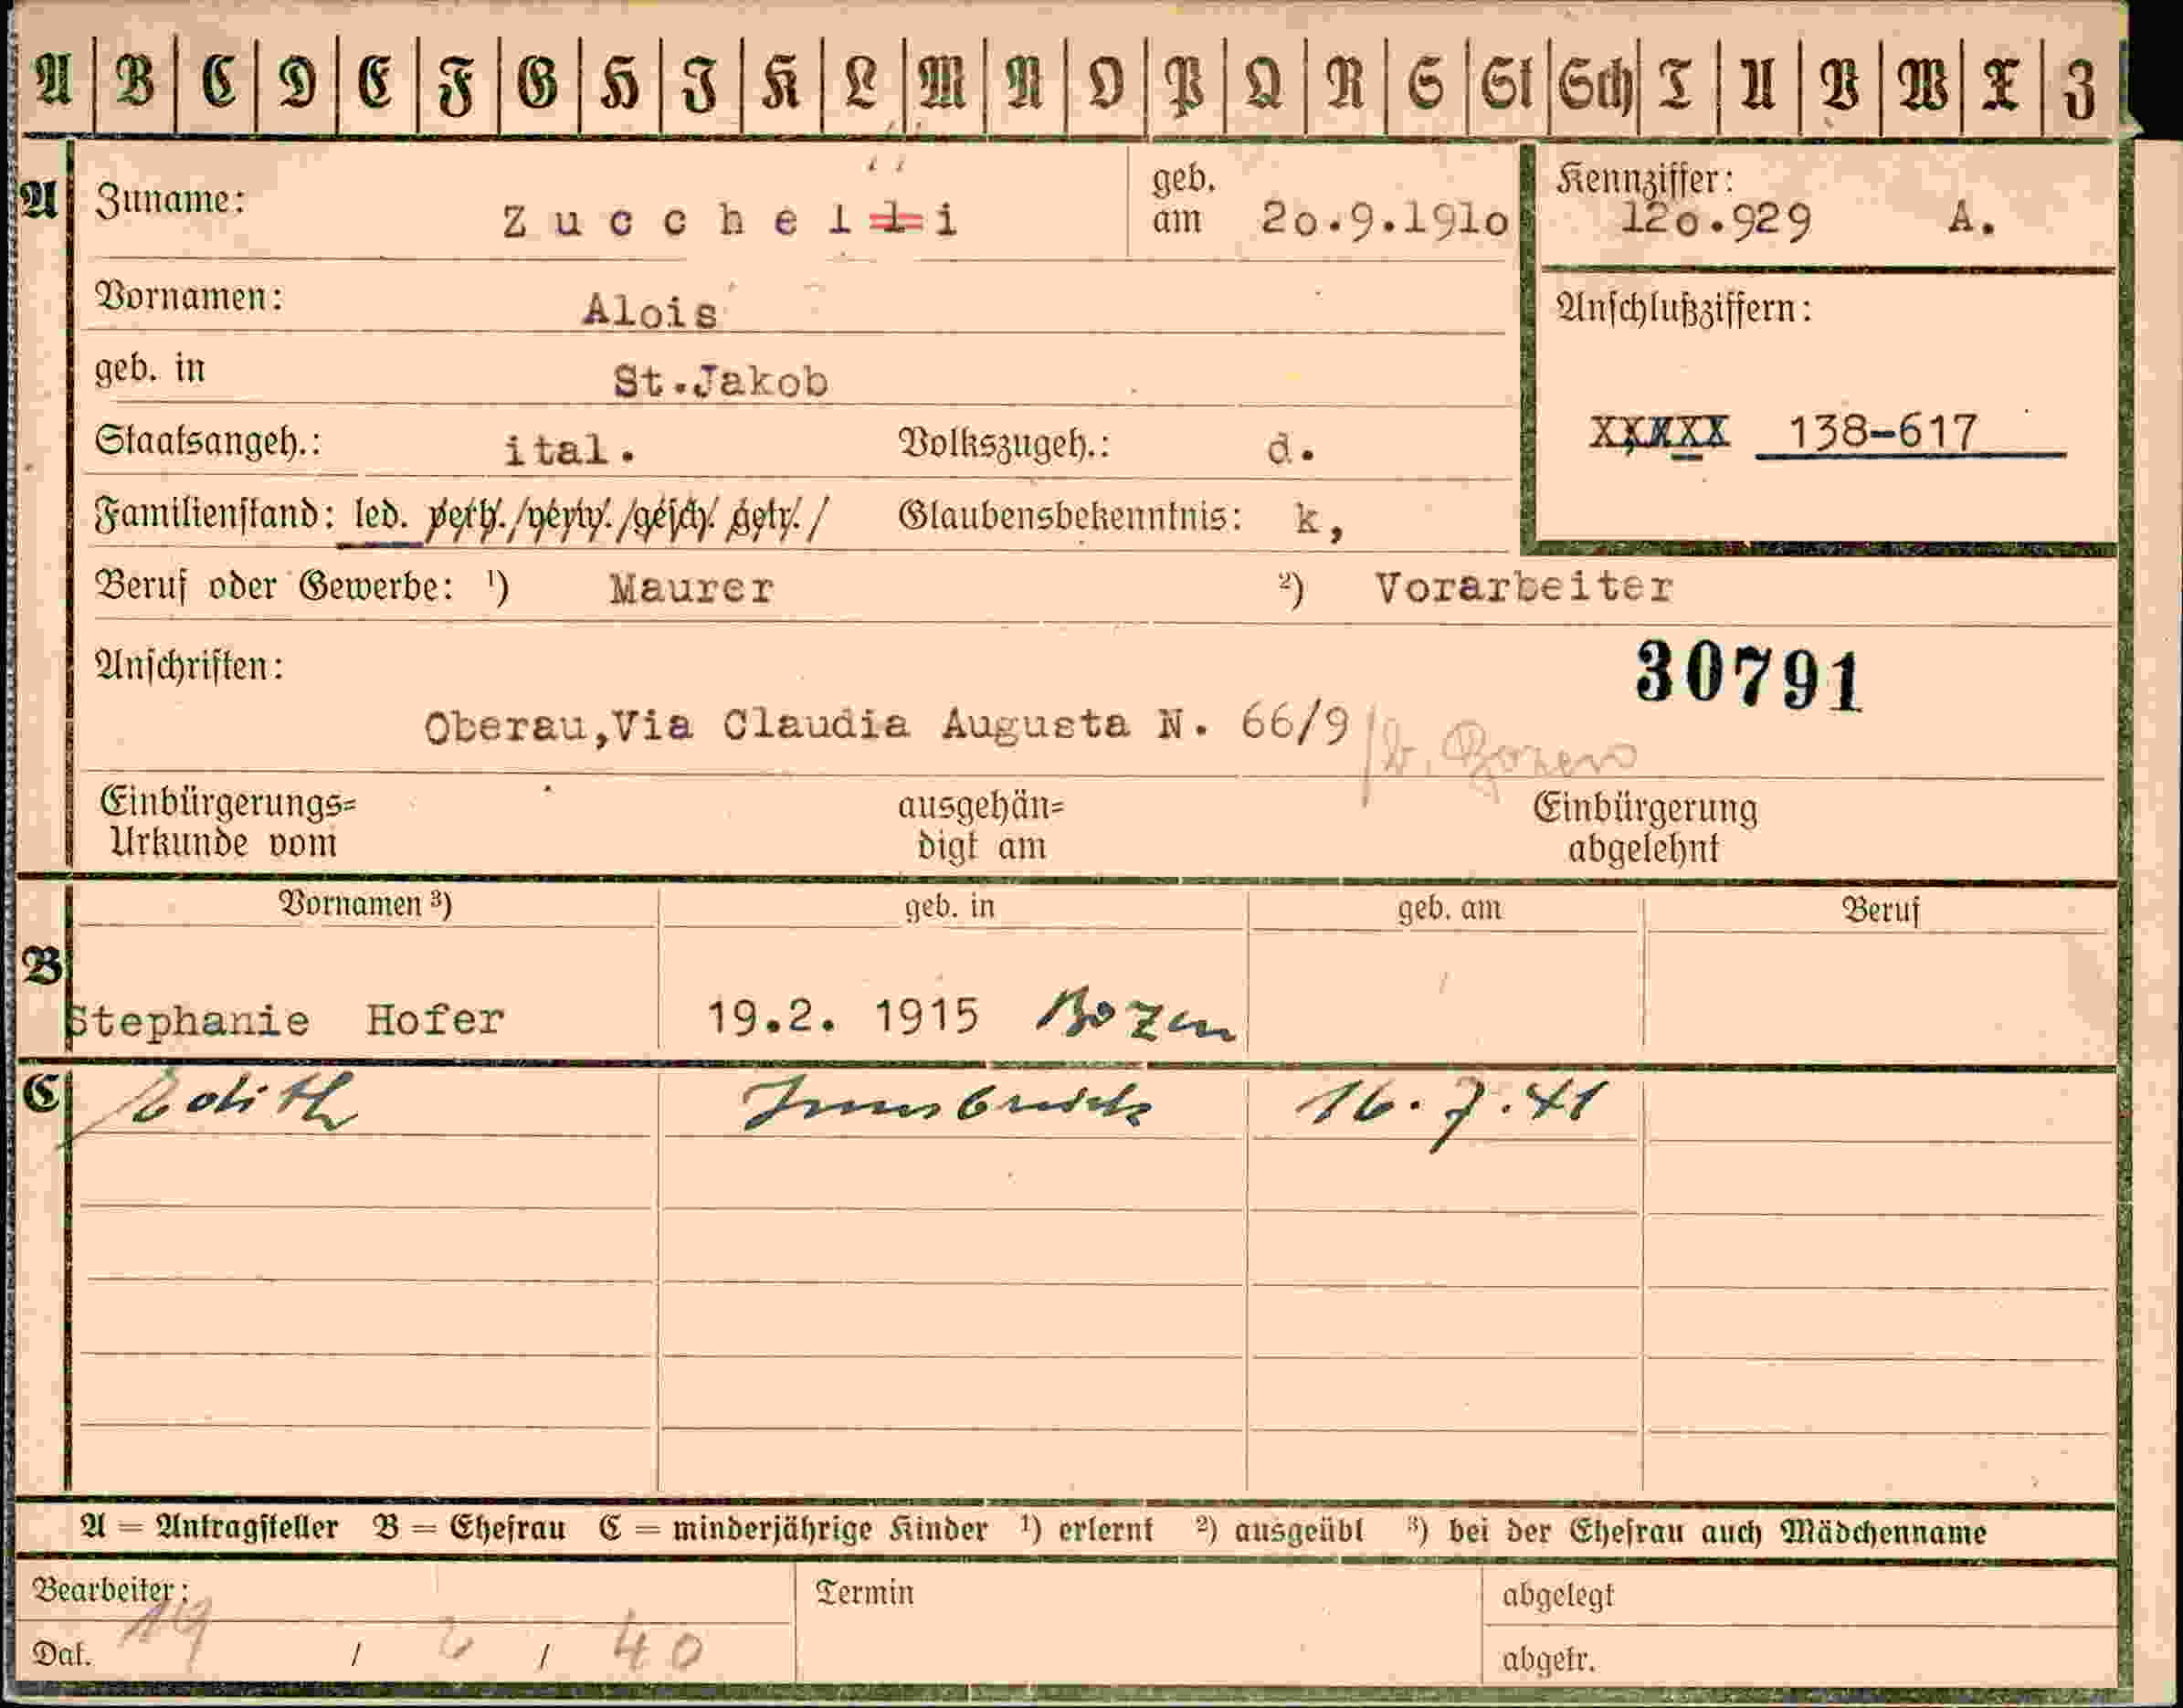 A B C D E F G H I K L M N O P Q R S St Sch T U V W X Z
A Zuname: Zucchelli geb. am 20.9.1910 Kennziffer: 120.929 A.
Vornamen: Alois Anschlußziffern:
geb. in St.Jakob
Staatsangeh.: ital. Volkszugeh.: d. XXXXX 138-617
Familienstand: led. verh./verw./gesch. getr./ Glaubensbekenntnis: k,
Beruf oder Gewerbe: ¹) Maurer ²) Vorarbeiter
Anschriften: 30791
Oberau,Via Claudia Augusta N. 66/9 / b. Bozen
Einbürgerungs=
Urkunde vom
ausgehän=
digt am
Einbürgerung
abgelehnt
Vornamen ³) geb. in geb. am Beruf
B
Stephanie Hofer 19.2. 1915 Bozen
C Edith Innsbruck 16.7.41
A = Antragsteller B = Ehefrau C = minderjährige Kinder ¹) erlernt ²) ausgeübt ³) bei der Ehefrau auch Mädchenname
Bearbeiter: Termin abgelegt
Dat. 19 / 2 / 40 abgetr.